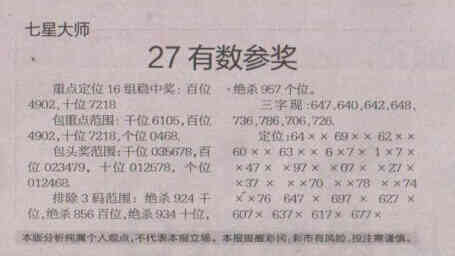 七星大师
27有数参奖
重点定位16组稳中奖：百位
4902,十位7218
包重点范围：千位6105,百位
4902,十位7218,个位0468.
包头奖范围:千位035678,百
位023479,十位012678,个位
012468.
排除3码范围：绝杀924千
位,绝杀856百位,绝杀934十位,
绝杀957个位.
三字现:647,640,642,648,
736,786,706,726.
定位:64×× 69×× 62××
60×× 63×× 6×7× 1×7×
×47× ×97× ×07× ×27×
×37× ××70 ××78 ××74
××76 647× 697× 627×
607× 637× 617× 677×
本版分析纯属个人观点,不代表本报立场。本报提醒彩民:彩市有风险,投注需谨慎。